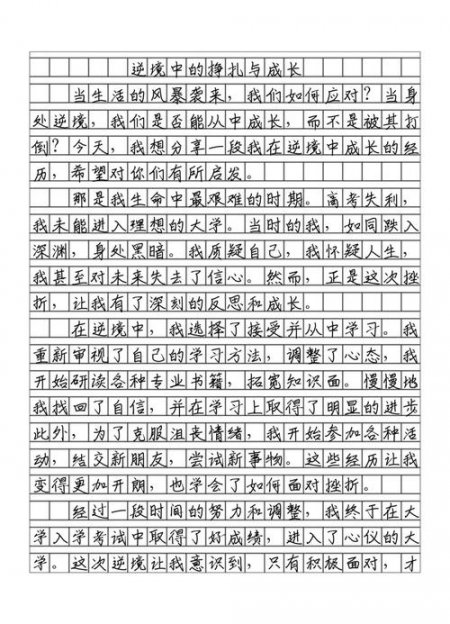 逆境中的挣扎与成长
当生活的风暴袭来，我们如何应对？当身
处逆境，我们是否能从中成长，而不是被其打
倒？今天，我想分享一段我在逆境中成长的经
历，希望对你们有所启发。
那是我生命中最艰难的时期。高考失利，
我未能进入理想的大学。当时的我，如同跌入
深渊，身处黑暗。我质疑自己，我怀疑人生，
我甚至对未来失去了信心。然而，正是这次挫
折，让我有了深刻的反思和成长。
在逆境中，我选择了接受并从中学习。我
重新审视了自己的学习方法，调整了心态，我
开始研读各种专业书籍，拓宽知识面。慢慢地
我找回了自信，并在学习上取得了明显的进步
此外，为了克服沮丧情绪，我开始参加各种活
动，结交新朋友，尝试新事物。这些经历让我
变得更加开朗，也学会了如何面对挫折。
经过一段时间的努力和调整，我终于在大
学入学考试中取得了好成绩，进入了心仪的大
学。这次逆境让我意识到，只有积极面对，才